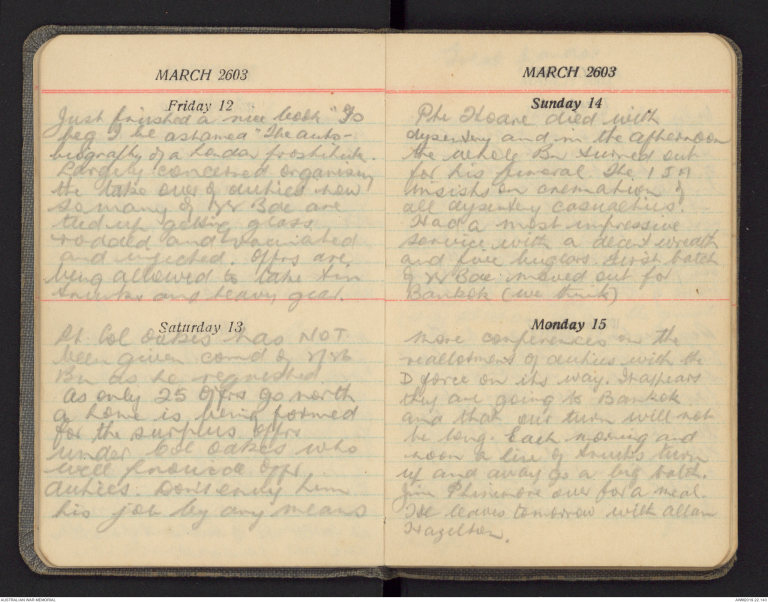 MARCH 2603
Friday 12
Just finished a nice book "To
beg I be ashamed" The auto-
biography of a London prostitute.
Largely concerned organising
the take over of duties now
so many of Bde are
tied up getting glass
rodded and vaccinated
and injected. Offrs are
being allowed to take tin
trunks and heavy gear.
Saturday 13
Lt Col Oakes has NOT
been given comd of
Bn as he requested.
As only 25 Offrs go north
a home is being formed
for the surplus offrs
under Col Oakes who
will offrs
duties. Don't envy him
his job by any means
MARCH 2603
Sunday 14
Pte Hoare died with
dysentery and in the afternoon
the whole Bn turned out
for his funeral. The IJA
insists on cremation of
all dysentery casualties.
Had a most impressive
service with a decent wreath
and five buglers. First batch
of Bde moved out for
Bankok (we think)
Monday 15
More conferences on the
reallotment of duties with the
D force on its way. It appears
they are going to Bankok
and that our turn will not
be long. Each morning and
noon a line of trucks turn
up and away go a big batch.
Jim Phinmore over for a meal.
He leaves tomorrow with Allan
Hazelton.
AUSTRALIAN WAR MEMORIAL